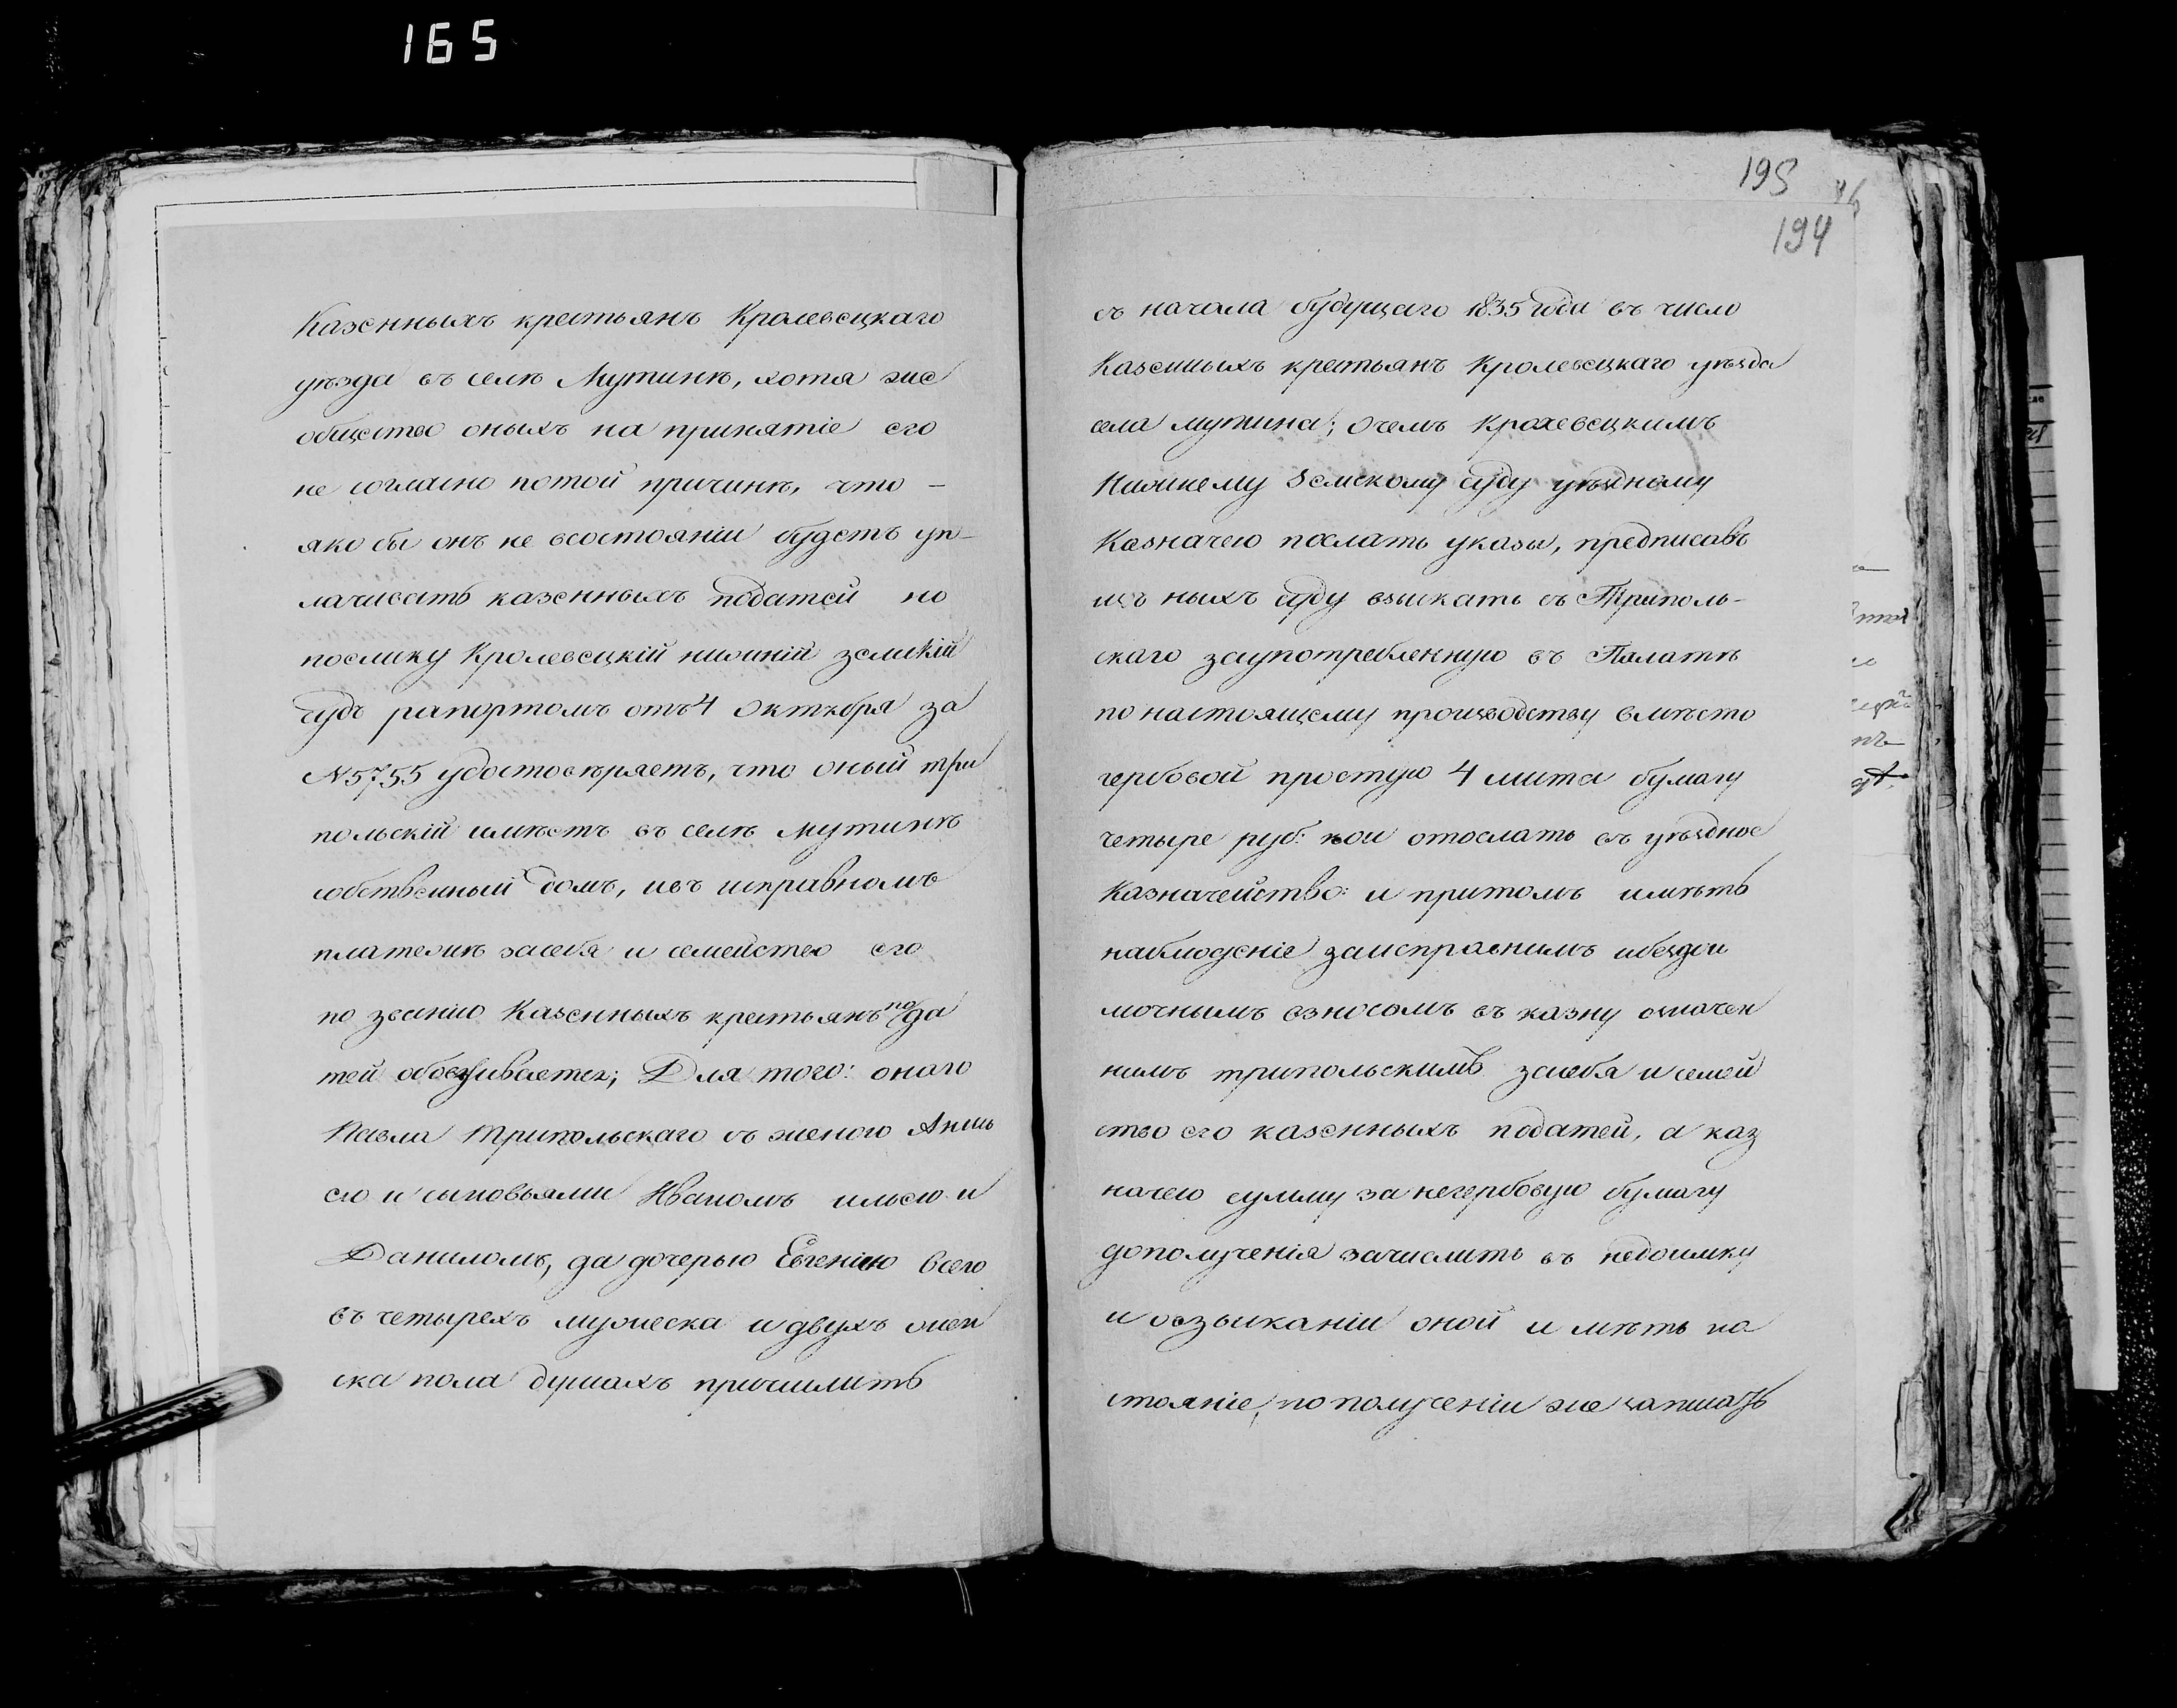 165
Казенныхъ крестьянъ Кролевецкаго
уѣзда въ селѣ Мутинѣ, хотя же
общество оныхъ на принятіе его
не согласно потой причинѣ, что -
яко бы онъ не всостояніи будетъ уп-
лачивать казенныхъ податей но
поелику Кролевецкій нижній земскій
судъ рапортомъ отъ 4 Октября за
N 5755 удостовѣряетъ, что оный три
польскій имѣетъ въ селѣ Мутинѣ
собственный домъ, ивъ исправномъ
платежѣ засебя и семейство его
по званію Казенныхъ крестьянъ пода
тей обовязывается; Для того: онаго
Павла Трипольскаго съ женою Анны
ею и сыновьями Иваномъ ильею и
Даниломъ, да дочерью Евгенiю всего
въ четырехъ мужеска и двухъ жен
ска пола душахъ причислить
195
194
съ начала будущаго 1835 года въ число
Казенныхъ крестьянъ Кролевецкаго уѣзда
села мутина; очемъ Кролевецкимъ
Нижнему Земскому суду уѣздному
Казначею послать указы, предписавъ
изъ ныхъ суду взыскать съ Триполь-
скаго заупотребленную въ Палатѣ
по настоящему производству вмѣсто
гербовой простую 4 листа бумагу
четыре руб: кои отослать въ уѣздное
Казначейство: и притомъ имѣть
наблюденіе заисправнимъ ибездои
мочнымъ взносомъ въ казну означен
нимъ трипольскимъ засебя и семей
ство его казенныхъ податей, а каз
начею сумму за негербовую бумагу
дополученія зачислить въ недоимку
и овзысканіи оной имѣть на
стояніе, по полученіи же записать